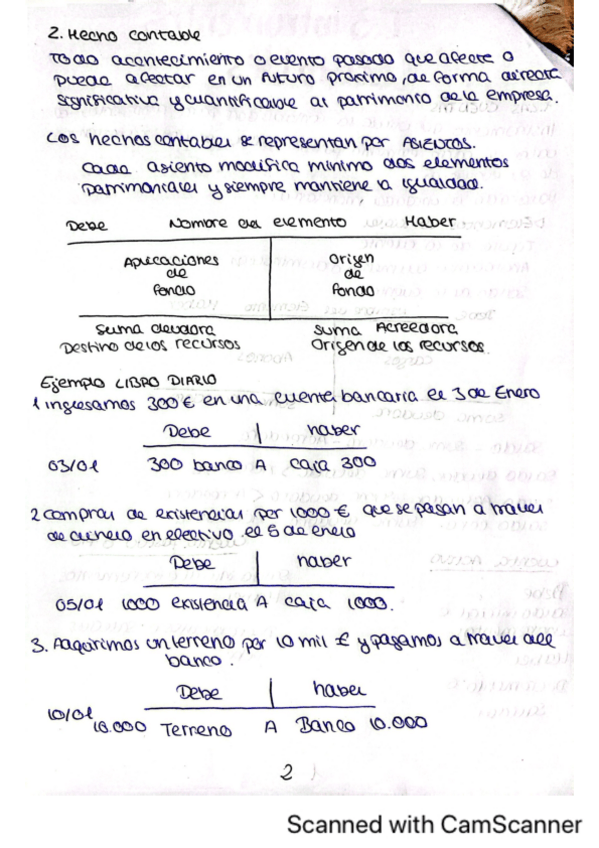 2. Hecho contable
Todo acontecimiento o evento pasado que afecte o
pueda afectar en un futuro proximo, de forma directa
significativa y cuantificable al patrimonio de la empresa.
Los hechos contables se representan por ASIENTOS.
Cada asiento modifica minimo dos elementos
patrimoniales y siempre mantiene la igualdad.
Debe Nombre del elemento Haber
Aplicaciones de Fondo
Origen de Fondo
Suma deudora Suma Acreedora
Destino de los recursos Origen de los recursos
Ejemplo LIBRO DIARIO
1 ingresamos 300 € en una cuenta bancaria el 3 de Enero
Debe haber
03/01 300 banco A caja 300
2 compras de existencias por 1000 € que se pasan a traves
de dinero en efectivo el 5 de enero
Debe haber
05/01 1000 existencia A caja 1000.
3. Adquirimos un terreno por 10 mil € y pagamos a traves del
banco.
Debe haber
10/01
10.000 Terreno A Banco 10.000
2
Scanned with CamScanner